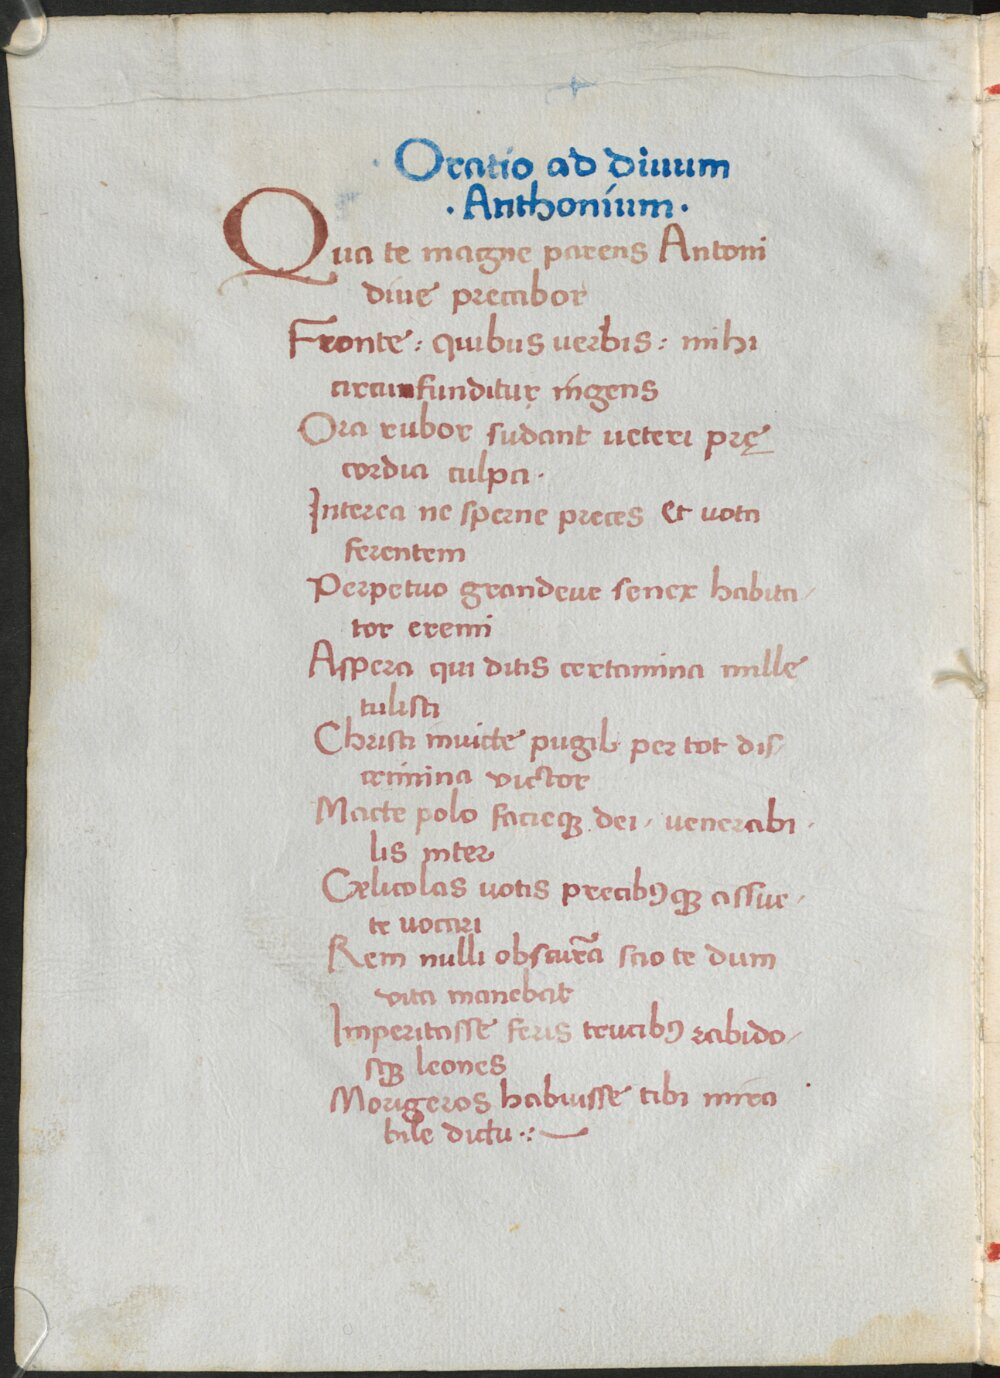 Oratio ad diuum
· Anthonium ·
Qua te magne parens Antoni
diue precabor
Fronte : quibus uerbis : mihi
circumfunditur ingens
Ora rubor sudant ueteri prę
cordia culpa ·
Interea ne sperne preces et uota
ferentem
Perpetuo grandeue senex habita/
tor eremi
Aspera qui ditis certamina mille
tulisti
Christi inuicte pugil per tot dis/
crimina victor
Macte polo facieqꝫ dei / venerabi /
lis inter
Cælicolas uotis precibꝰqꝫ assue /
te uocari
Rem nulli obscurã scio te dum
vita manebat
Imperitasse feris trucibꝰ rabido/
sqꝫ leones
Morigeros habuisse tibi mira
bile dictu ·: